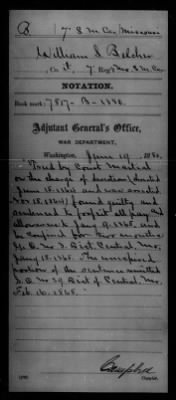 B 7 S M Cav Missouri
William S Belcher
, Co. , 7 Reg't Mo. S M Cav
NOTATION.
Book mark: 7817-B-1880.
Adjutant General's Office,
WAR DEPARTMENT,
Washington, June 19, 1880.
Tried by Court Martial
on the charge of desertion (deserted
June 15. 1864 and was arrested
Nov 15. 1864) found guilty and
sentenced to forfeit all pay and
allowances Jany 9. 1865. and
to be confined for two months
G. C. M. O. 3. Dist. Central, Mo,
Jany 15. 1865. The unexpired
portion of the sentence remitted
S. O. No 39 Dist of Central, Mo,
Feb. 16. 1865.
Campbell
Copyist.